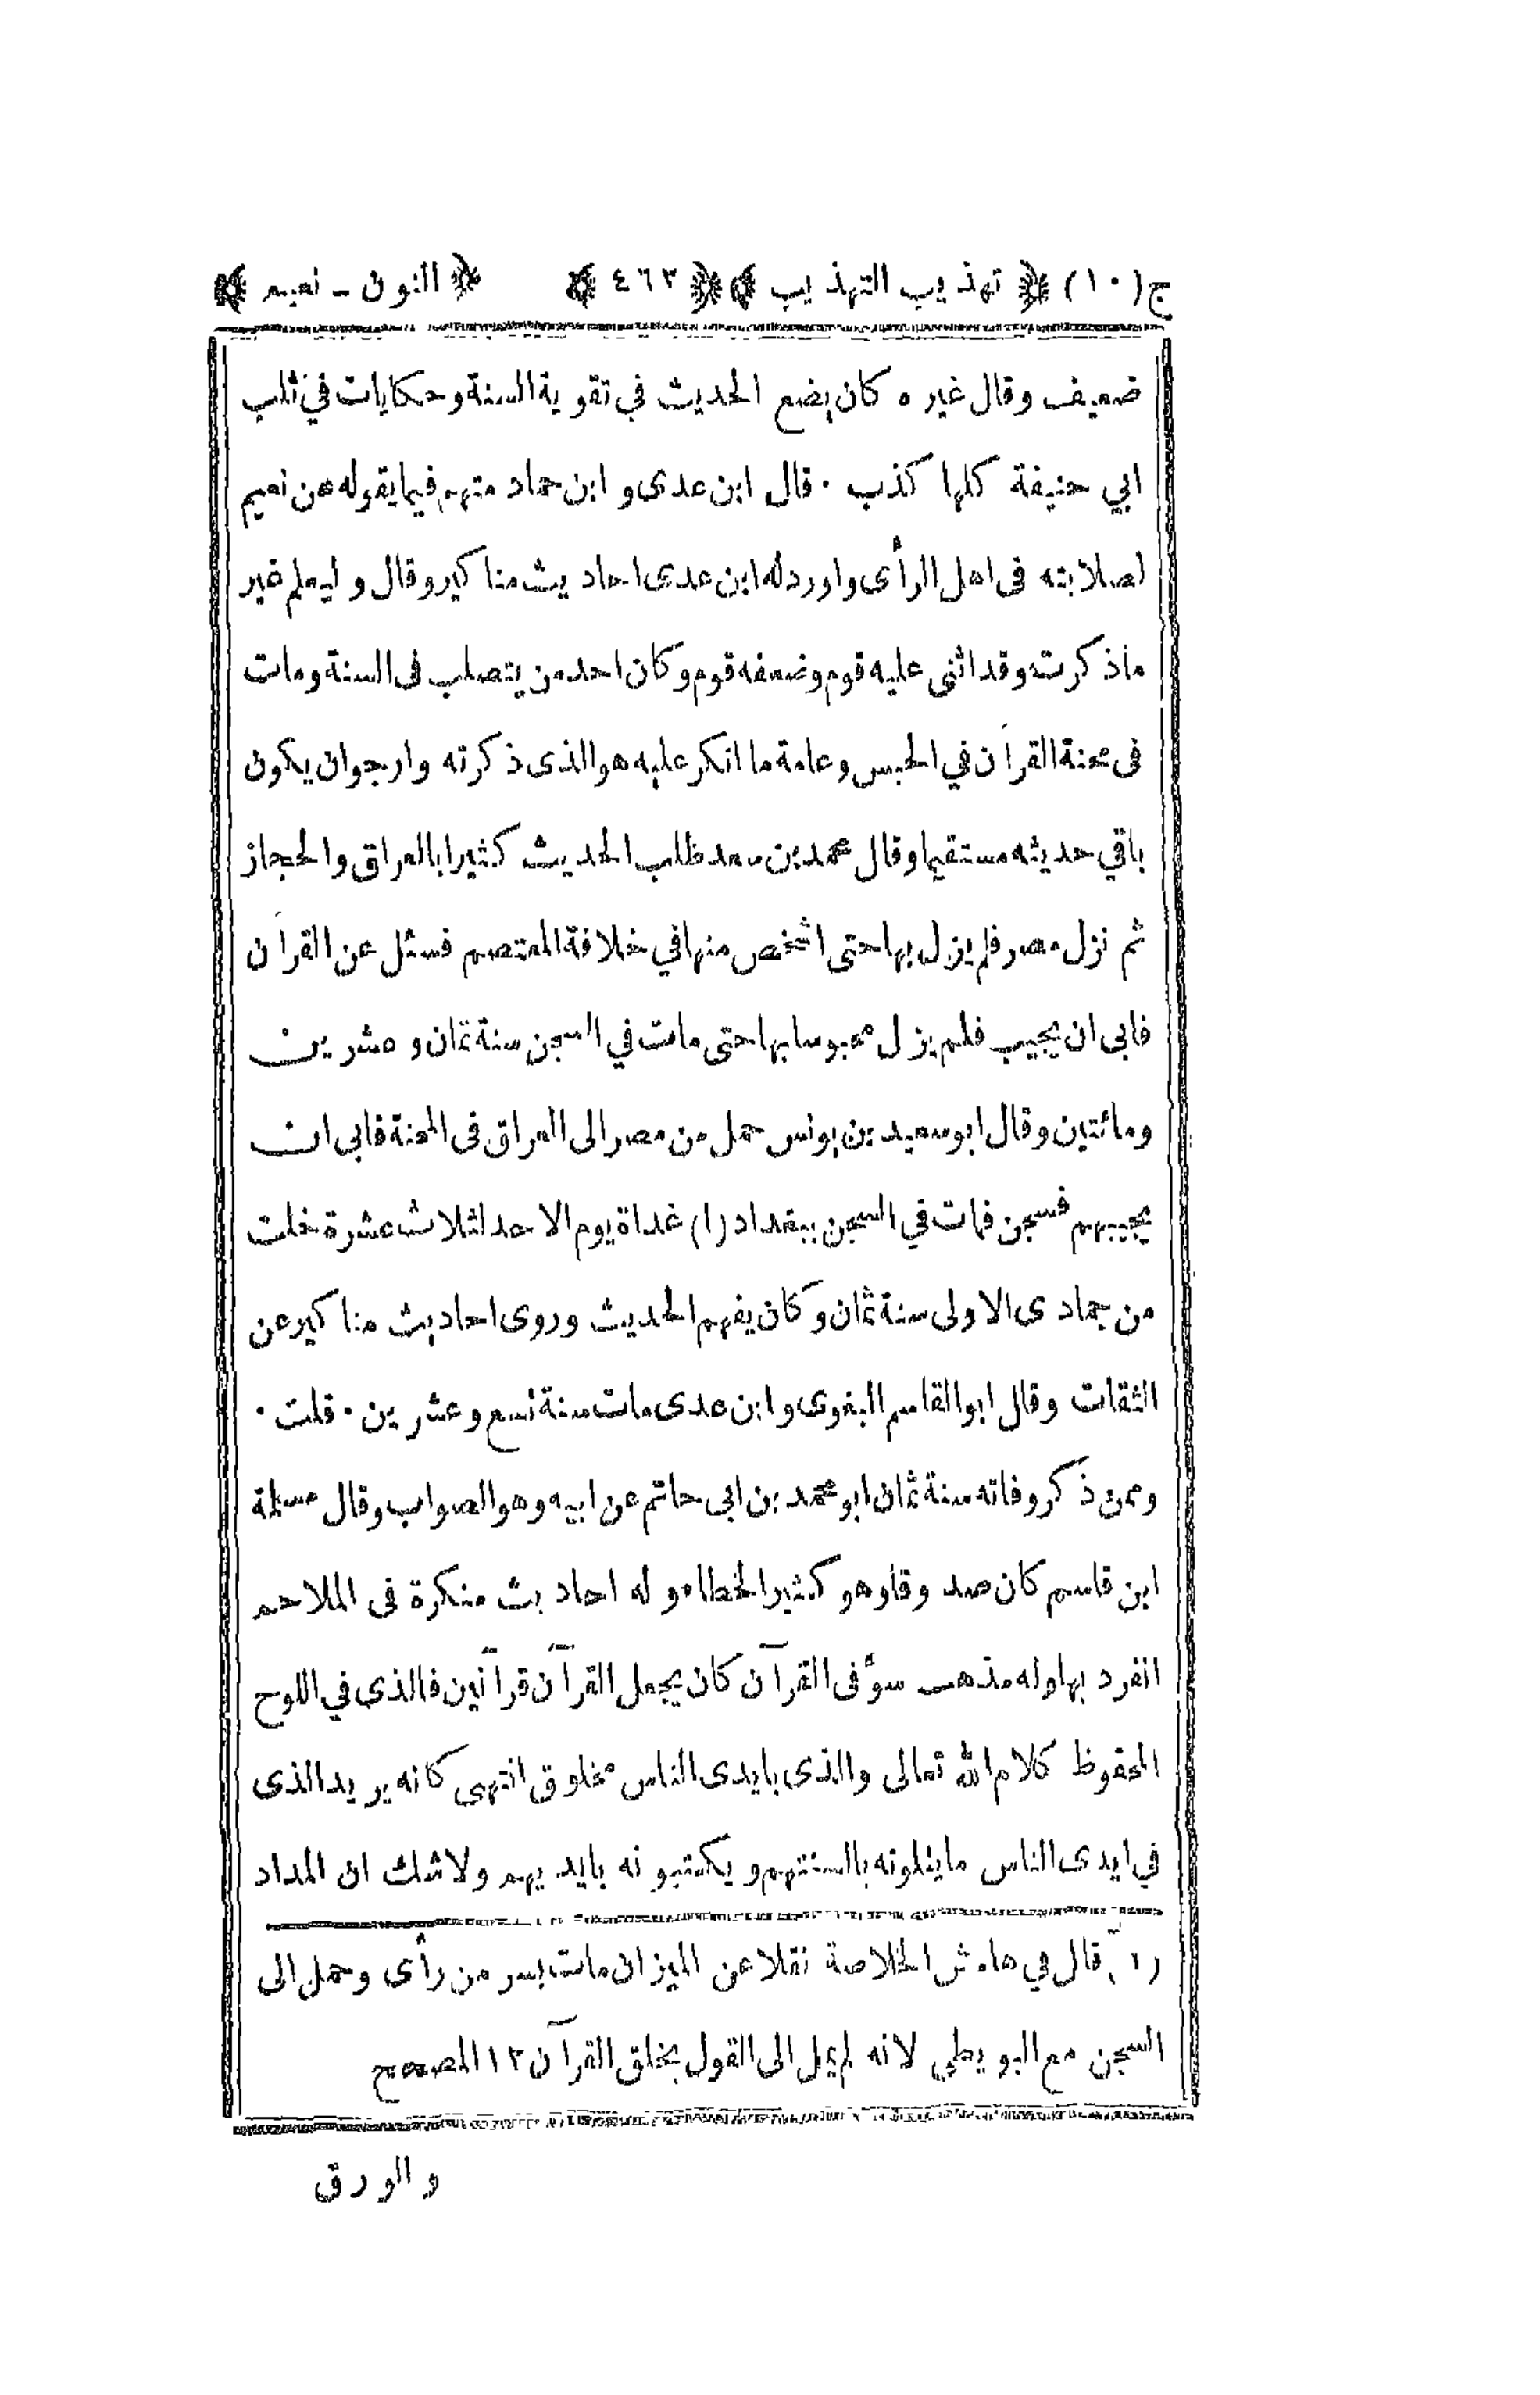 ج(١٠) ﴿تهذيب التهذيب﴾ ﴿٤٦٢﴾ ﴿النون - نعيم﴾
ضعيف وقال غيره كان يضع الحديث في تقوية السنة وحكايات في ثلب
ابي حنيفة كلها كذب ٠ قال ابن عدى و ابن حماد متهم فيما يقوله عن نعيم
لصلابته فى اهل الرأى واورد له ابن عدى احاديث مناكير وقال و ليعلم غير
ماذكرت وقد اثنى عليه قوم وضعفه قوم وكان احد من يتصلب فى السنة ومات
فى محنة القرآن في الحبس وعامة ما انكر عليه هو الذى ذكرته وارجو ان يكون
باقي حديثه مستقيما وقال محمد بن سعد طلب الحديث كثيرا بالعراق والحجاز
ثم نزل مصر فلم يزل بها حتى اشخص منها في خلافة المعتصم فسئل عن القرآن
فابى ان يجيب فلم يزل محبوسا بها حتى مات في السجن سنة ثمان و عشرين
ومائتين وقال ابو سعيد بن يونس حمل من مصر الى العراق فى المحنة فابى ان
يجيبهم فسجن فمات في السجن ببغداد (١) غداة يوم الاحد لثلاث عشرة خلت
من جمادى الاولى سنة ثمان وكان يفهم الحديث وروى احاديث مناكير عن
الثقات وقال ابو القاسم البغوى وابن عدى مات سنة تسع وعشرين ٠ قلت ٠
وممن ذكر وفاته سنة ثمان ابو محمد بن ابى حاتم عن ابيه وهو الصواب وقال مسلمة
ابن قاسم كان صدوقا وهو كثير الخطاء وله احاديث منكرة فى الملاحم
انفرد بها وله مذهب سوٴ فى القرآن كان يجعل القرآن قرآنين فالذى في اللوح
المحفوظ كلام الله تعالى والذى بايدى الناس مخلوق انتهى كانه يريد الذى
في ايدى الناس ما يتلونه بالسنتهم و يكتبونه بايديهم ولا شك ان المداد
(١) قال في هامش الخلاصة نقلا عن الميزان مات بسر من رأى وحمل الى
السجن مع البويطي لانه لم يمل الى القول بخلق القرآن ١٢ المصحح
والورق